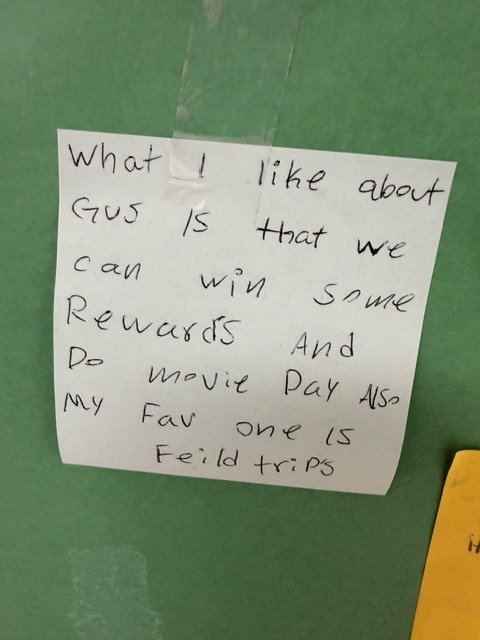 What I like about
Gus is that we
can win some
Rewards And
Do movie Day Also
My Fav one is
Feild trips
H